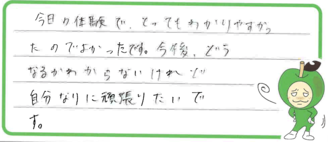 今日の体験で、とってもわかりやすかっ
たのでよかったです。今後、どう
なるかわからないけれど
自分なりに頑張りたいで
す。